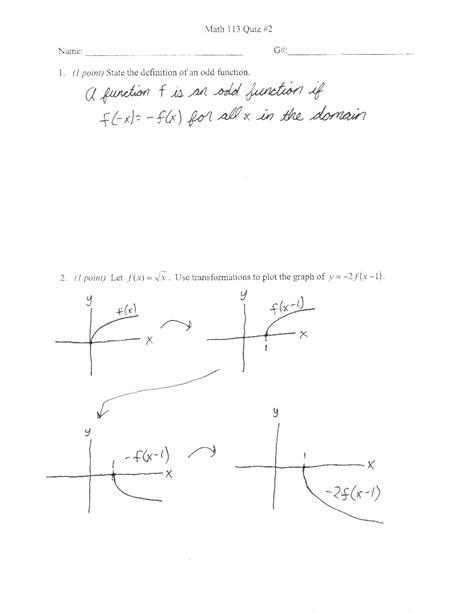 Math 113 Quiz #2
Name: G#:
1. (1 point) State the definition of an odd function.
A function f is an odd function if
f(-x) = -f(x) for all x in the domain
2. (1 point) Let f(x) = √x. Use transformations to plot the graph of y = -2f(x-1).
y y
f(x) f(x-1)
x x
1
y y
1 -f(x-1) 1
x x
-2f(x-1)